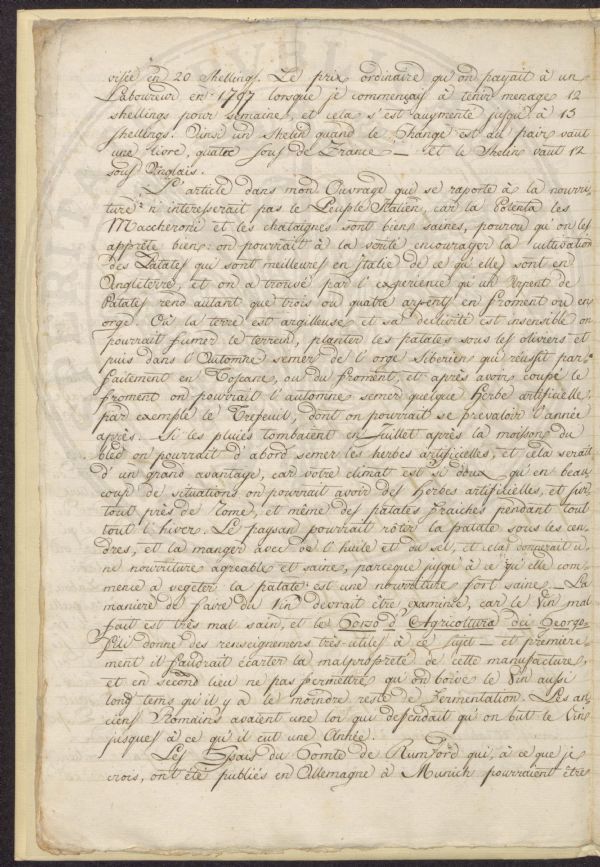 visée en 20 Shellings. Le prix ordinaire qu'on payait à un
Laboureur en 1797 lorsque je commençais à tenir menage 12
shellings pour semaine, et cela s'est augmenté jusqu'à 15
shellings. Ainsi un Shelin quand le Change est au pair vaut
une livre, quatre sous de France — et le Shelin vaut 12
sous Anglais.
L'article dans mon Ouvrage qui se raporte à la nourri-
ture n'interesserait pas le Peuple Italien, car la Polenta les
Maccheroni et les chataignes sont bien saines, pourvu qu'on les
apprète bien: on pourrait à la verité encourager la cultivation
des Patates qui sont meilleures en Italie de ce qu'elles sont en
Angleterre, et on a trouvé par l'experience qu'un Arpent de
Patates rend autant que trois ou quatre arpents en froment ou en
orge. Où la terre est argilleuse et sa declivité est insensible on
pourrait fumer le terrein, planter les patates sous les oliviers et
puis dans l'Automne semer de l'orge Siberien qui réussit par-
faitement en Toscane, ou du froment, et après avoir coupé le
froment on pourrait l'automne semer quelque herbe artificielle,
par exemple le Trepeuil, dont on pourrait se prevaloir l'année
après. Si les pluies tombaient en Juillet après la moisson du
bled on pourrait d'abord semer les herbes artificielles, et cela serait
d'un grand avantage, car votre climat est si doux qu'en beau-
coup de situations on pourrait avoir des herbes artificielles, et sur
tout près de Rome, et même des patates fraiches pendant tout
tout l'hiver. Le paysan pourrait rôter la patate sous les cen-
dres, et la manger avec de l'huile et du sel, et cela donnerait u-
ne nourriture agreable et saine, parceque jusqu'à ce qu'elle com-
mence à vegeter la patate est une nourriture fort saine — La
maniere de faire du Vin devrait être examinée, car le Vin mal
fait est très mal sain, et le Corso d'Agricoltura dei Georgo-
fili donne des renseignemens très-utiles à ce sujet — et premiere-
ment il faudrait ecarter la malpropreté de cette manufacture,
et en second lieu ne pas permettre qu'on boive le Vin aussi
long tems qu'il y a le moindre reste de Fermentation. Les an-
ciens Romains avaient une loi qui defendait qu'on but le Vin
jusques à ce qu'il eut une Année.
Les Essais du Comte de Rumford qui, à ce que je
crois, ont été publiés en Allemagne à Munich pourraient être